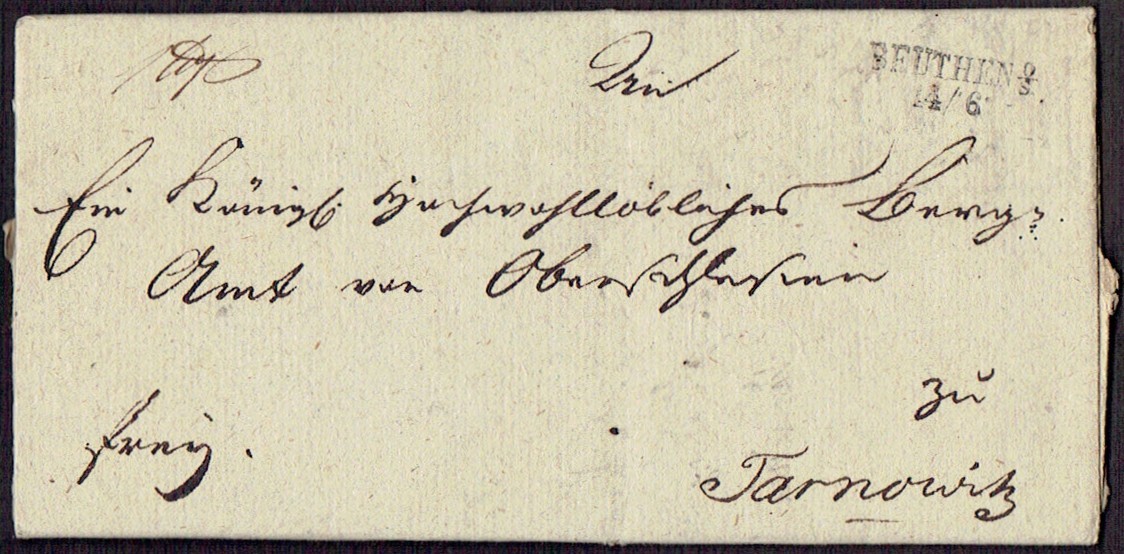 An
BEUTHEN O/S.
14/6
Ein Königl: Hochwohllöbliches Berg=
Amt von Oberschlesien
zu
frey.
Tarnowitz